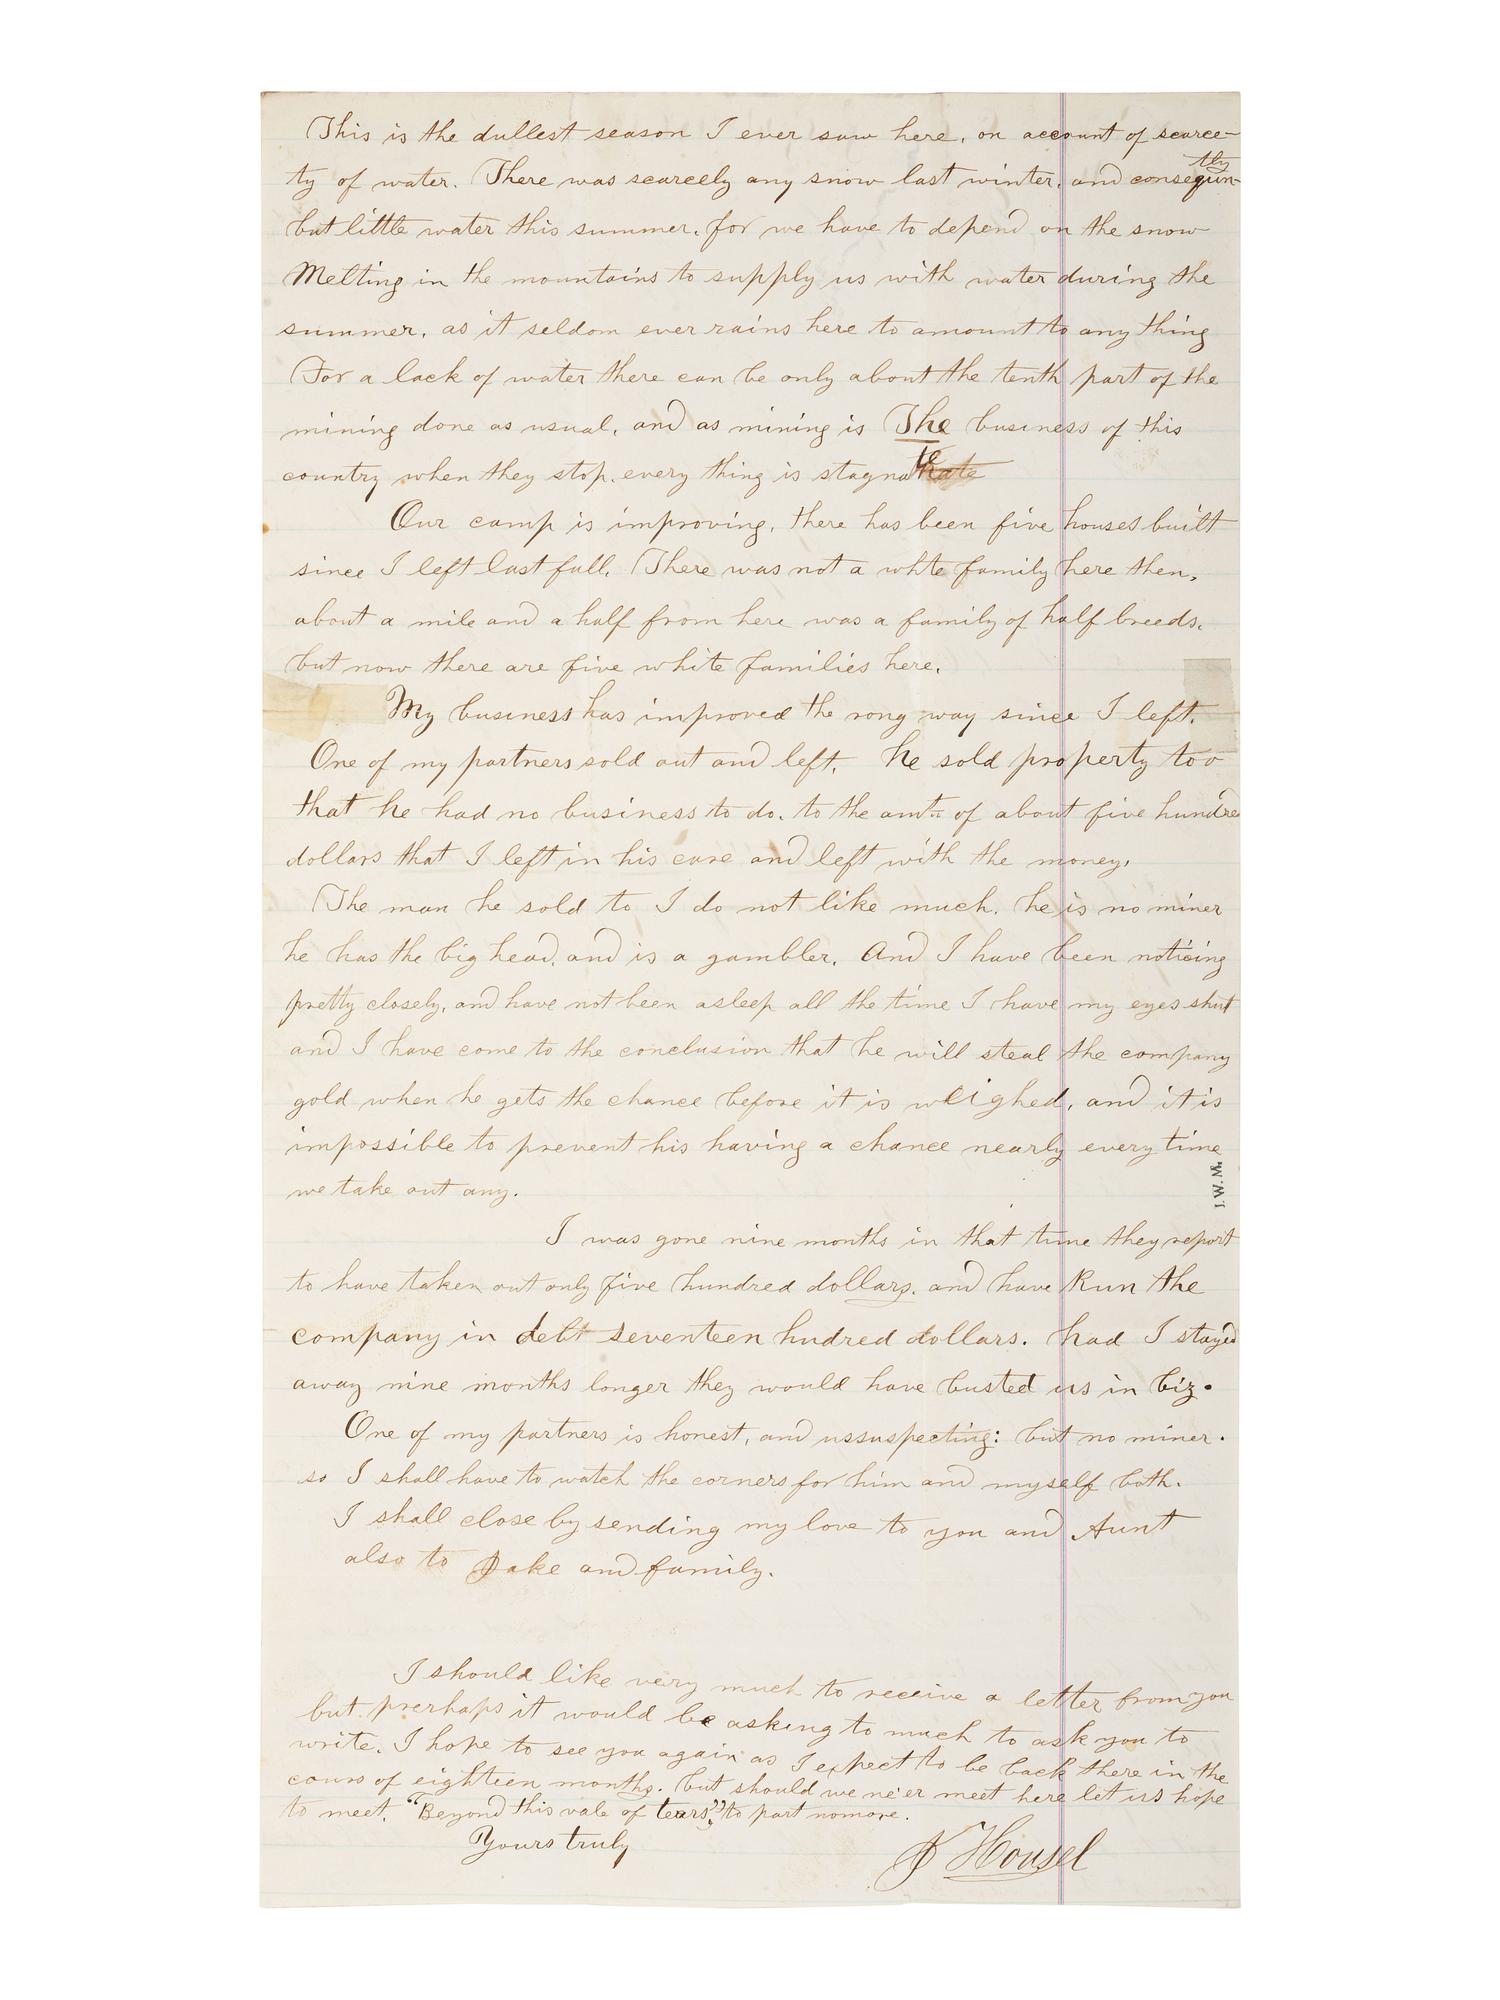 This is the dullest season I ever saw here, on account of scarce-
ty of water. There was scarcely any snow last winter, and consequn-
tly
but little water this summer, for we have to depend on the snow
Melting in the mountains to supply us with water during the
summer, as it seldom ever rains here to amount to any thing
For a lack of water there can be only about the tenth part of the
mining done as usual, and as mining is The business of this
country when they stop, every thing is stagnate
Our camp is improving, there has been five houses built
since I left last fall. There was not a white family here then,
about a mile and a half from here was a family of half breeds,
but now there are five white families here.
My business has improved the rong way since I left.
One of my partners sold out and left. he sold property too
that he had no business to do, to the amt. of about five hundred
dollars that I left in his care and left with the money.
The man he sold to I do not like much. he is no miner
he has the big head, and is a gambler. And I have been noticing
pretty closely, and have not been asleep all the time I have my eyes shut
and I have come to the conclusion that he will steal the company
gold when he gets the chance before it is weighed, and it is
impossible to prevent his having a chance nearly every time
we take out any.
I.W.M.
I was gone nine months in that time they report
to have taken out only five hundred dollars, and have Run the
company in debt seventeen hudred dollars. had I stayed
away nine months longer they would have busted us in biz.
One of my partners is honest, and ussuspecting: but no miner.
so I shall have to watch the corners for him and myself both.
I shall close by sending my love to you and Aunt
also to Jake and family.
I should like very much to receive a letter from you
but prerhaps it would be asking to much to ask you to
write. I hope to see you again as I expect to be back there in the
cours of eighteen months. but should we ne'er meet here let us hope
to meet, "Beyond this vale of tears," to part nomore.
Yours truly
J Housel